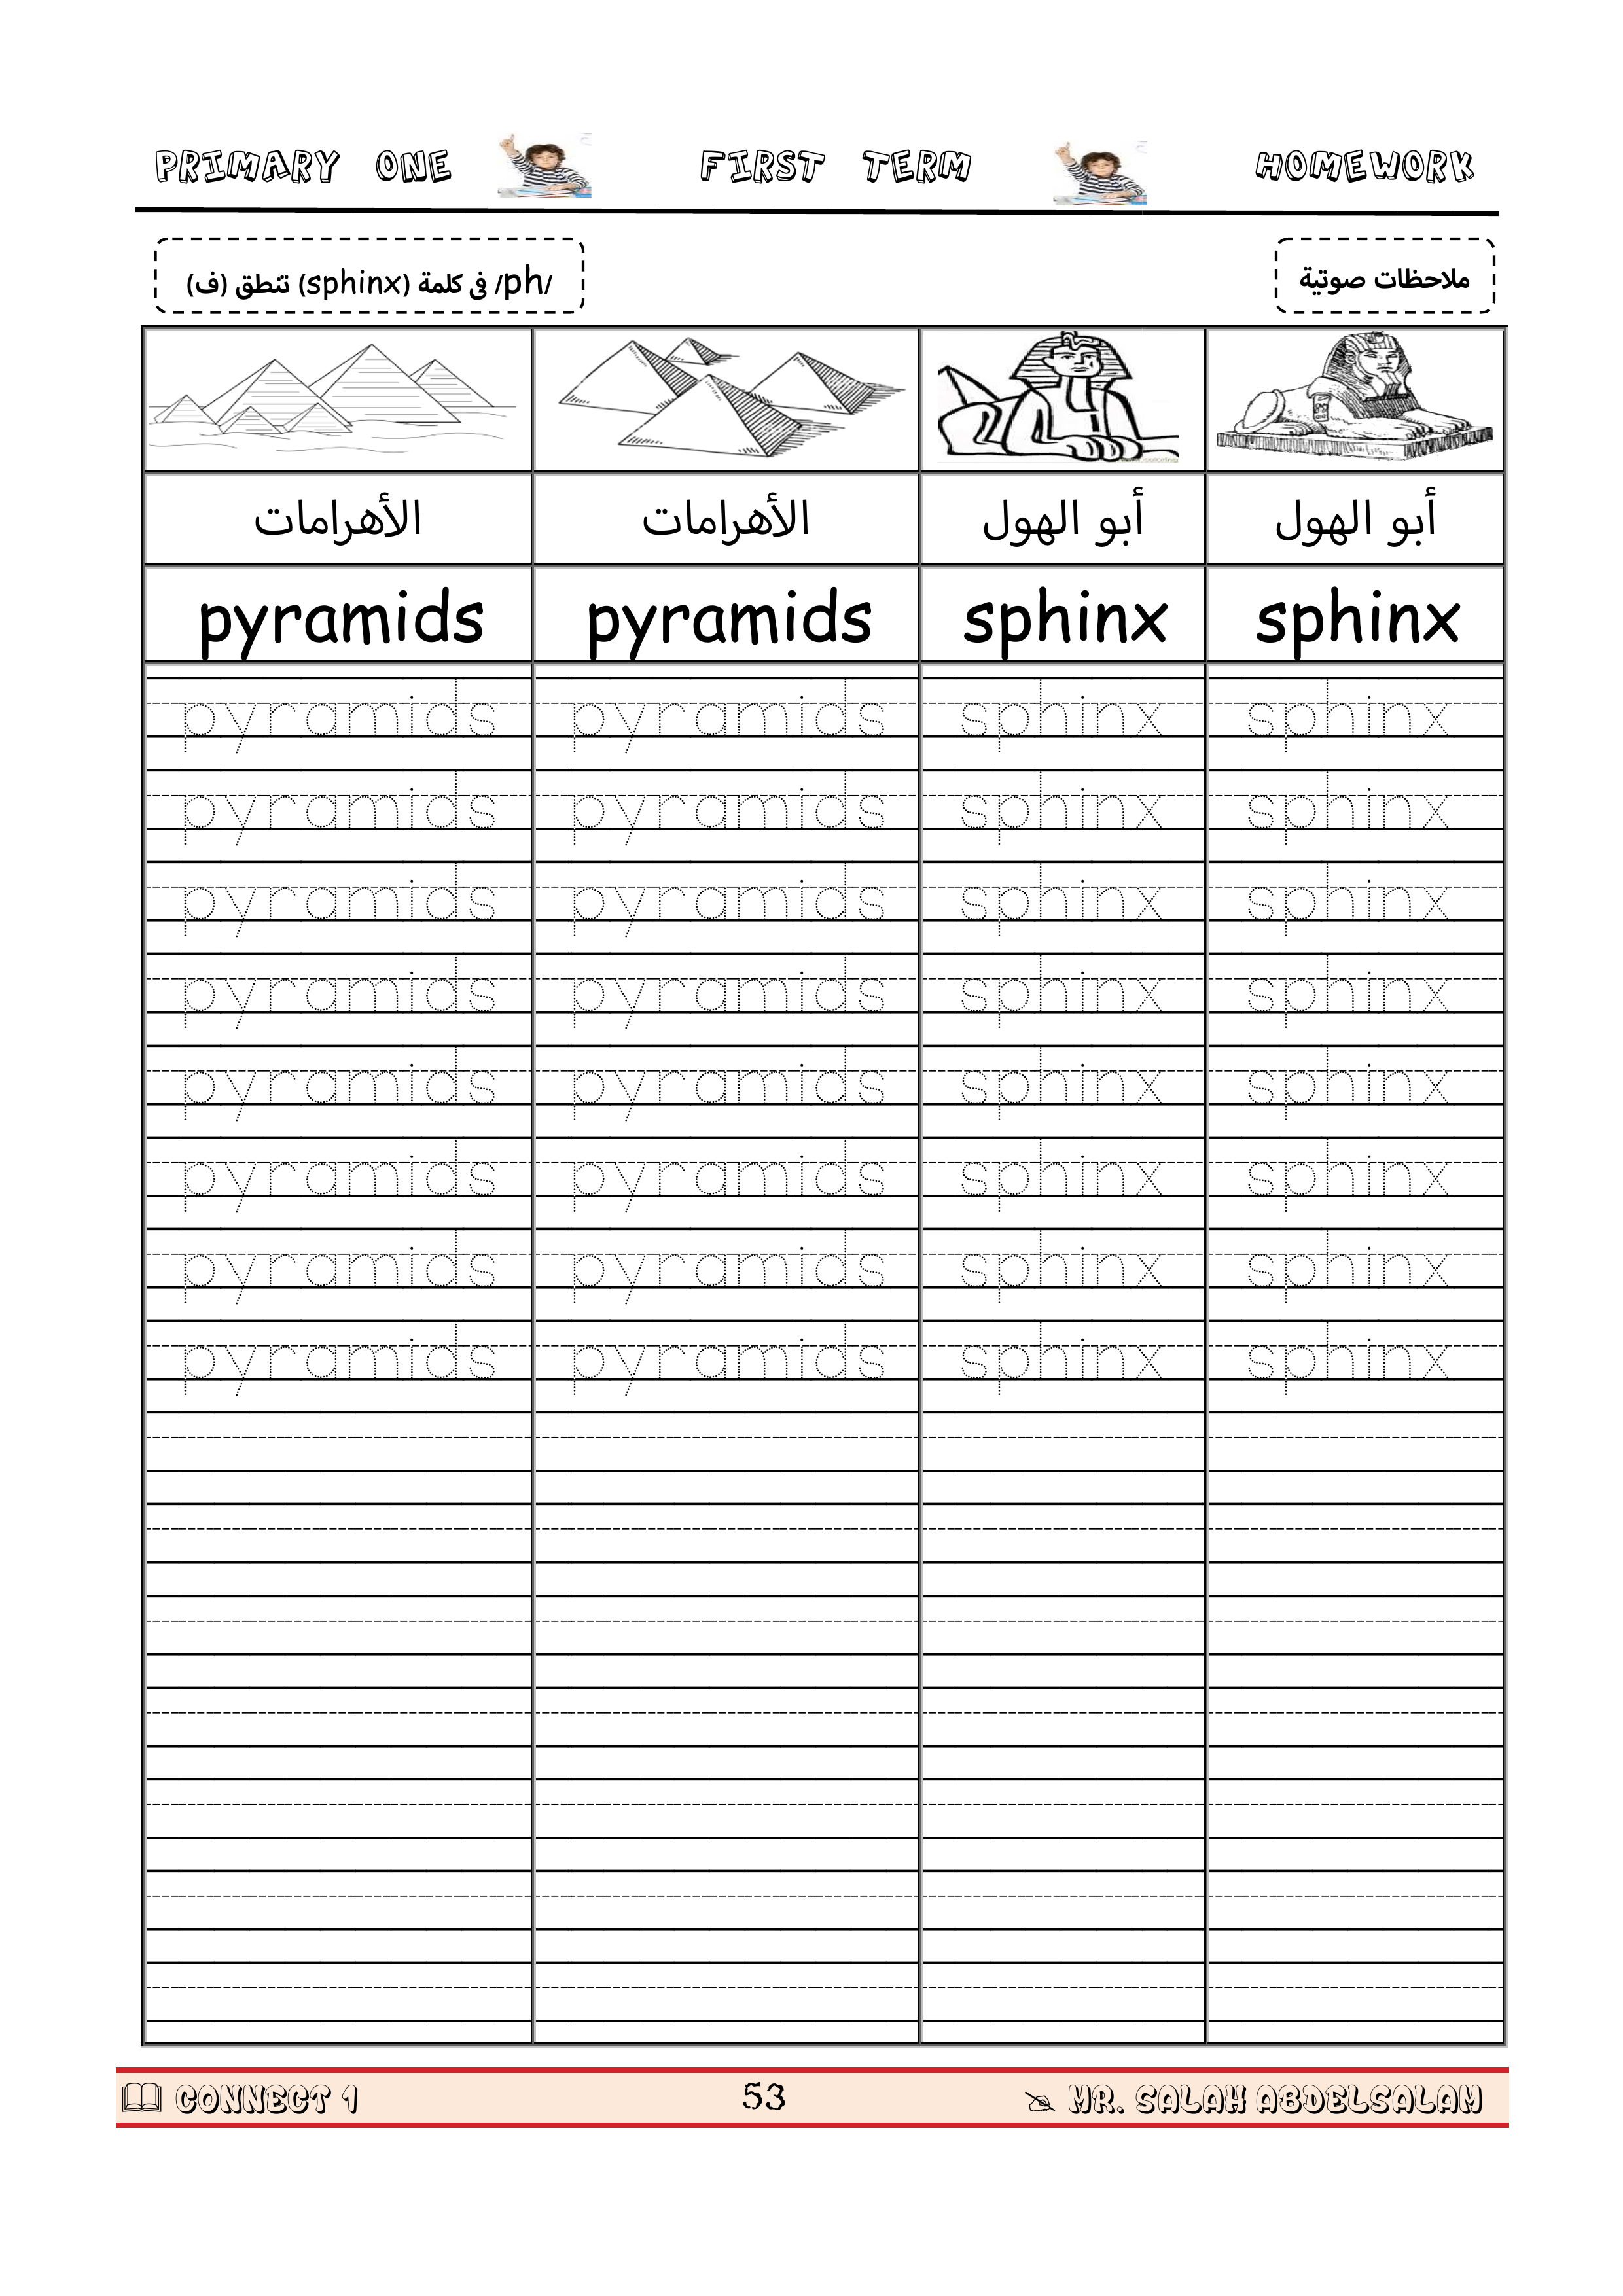 PRIMARY ONE FIRST TERM HOMEWORK
ملاحظات صوتية
/ph/ فى كلمة (sphinx) تنطق (ف)
الأهرامات الأهرامات أبو الهول أبو الهول
pyramids pyramids sphinx sphinx
pyramids pyramids sphinx sphinx
pyramids pyramids sphinx sphinx
pyramids pyramids sphinx sphinx
pyramids pyramids sphinx sphinx
pyramids pyramids sphinx sphinx
pyramids pyramids sphinx sphinx
pyramids pyramids sphinx sphinx
pyramids pyramids sphinx sphinx
CONNECT 1 53 MR. SALAH ABDELSALAM